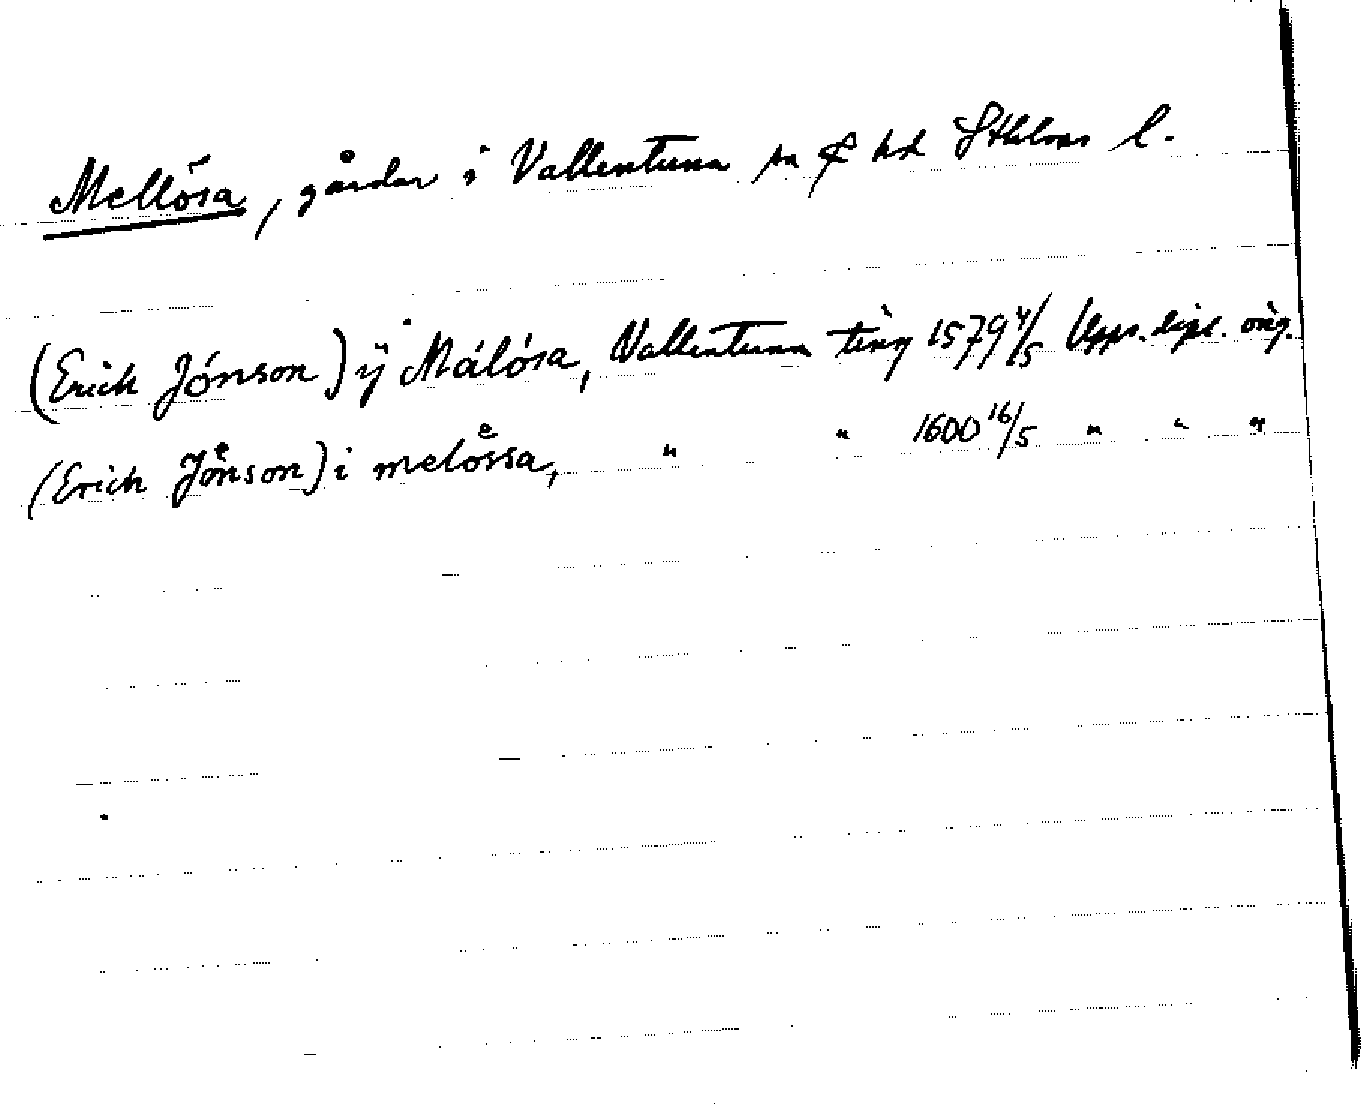 Mellösa, gårdar i Vallentuna sn & hd Sthlms l.
(Erich Jónson) ÿ Málósa, Vallentuna ting 1579 4/5 Upps. dipl. orig.
(Erich Joͤnson) i meloͤssa, " " 1600 16/5 " " "